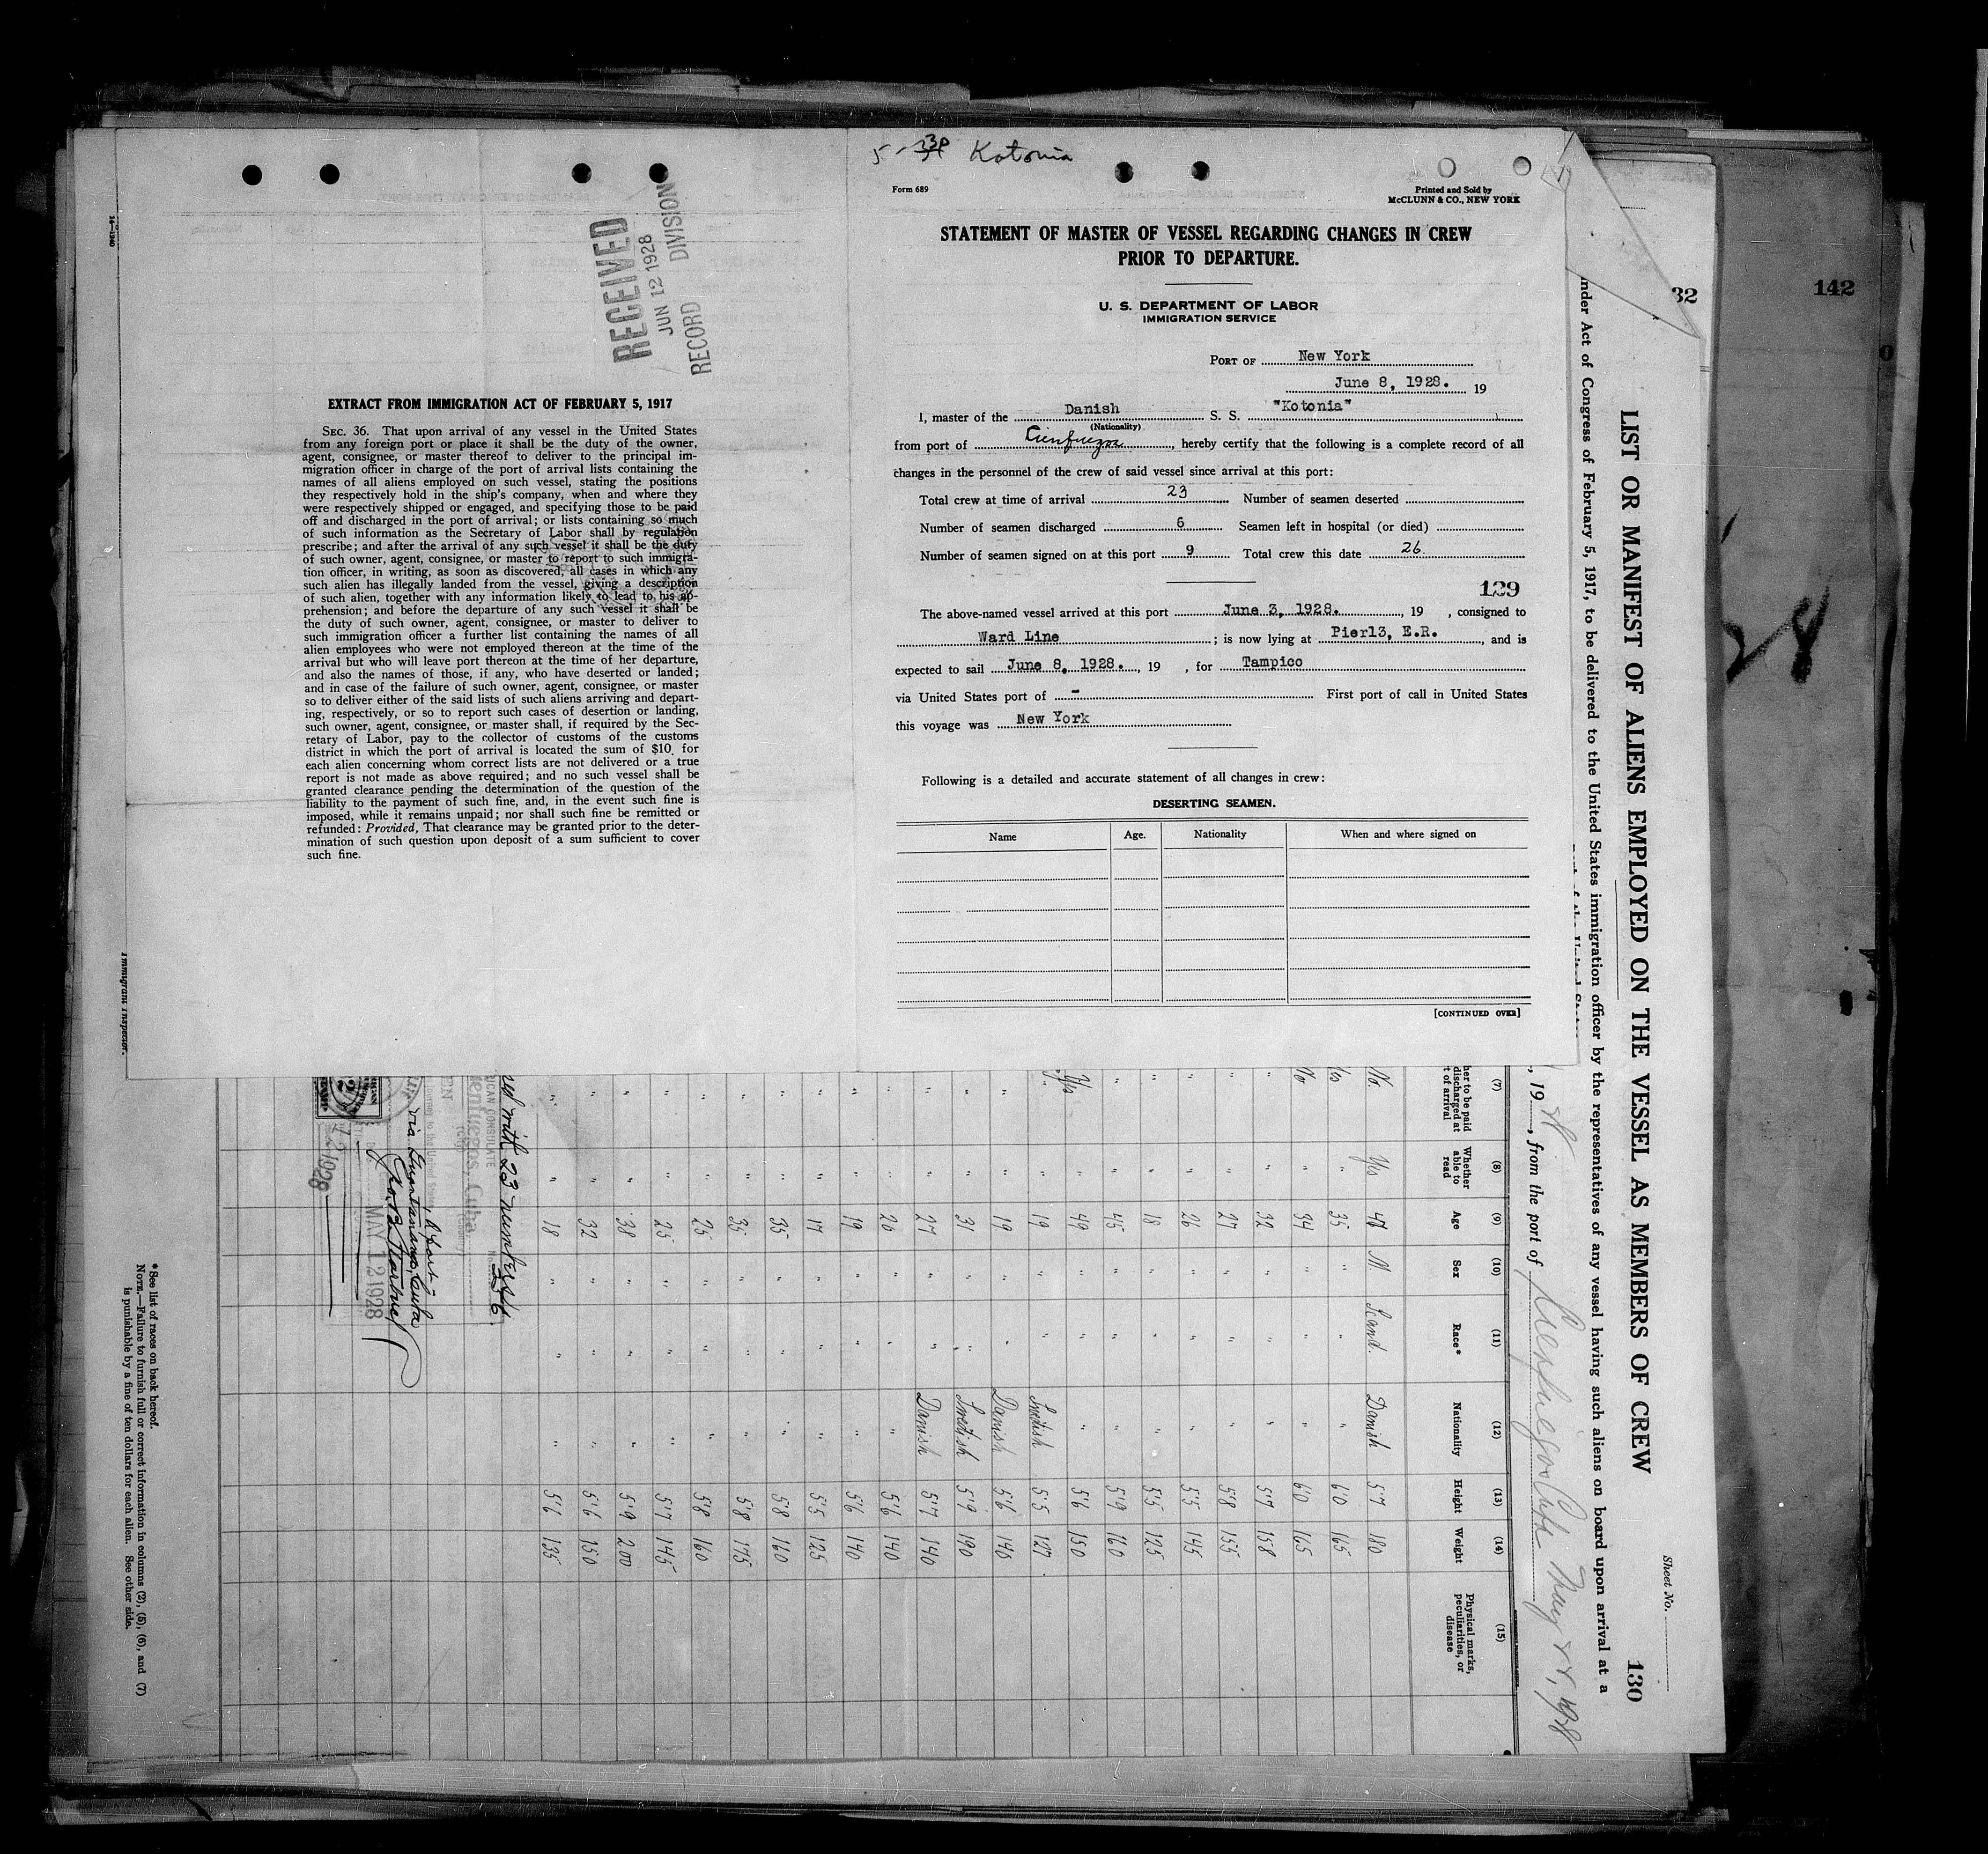 5-30 Kotonia
Form 689
Printed and Sold by
McCLUNN & CO., NEW YORK
STATEMENT OF MASTER OF VESSEL REGARDING CHANGES IN CREW
PRIOR TO DEPARTURE.
U. S. DEPARTMENT OF LABOR
IMMIGRATION SERVICE
PORT OF New York
June 8, 1928. 19
I, master of the Danish S. S. "Kotonia"
(Nationality)
from port of Cienfuegos, hereby certify that the following is a complete record of all
changes in the personnel of the crew of said vessel since arrival at this port:
Total crew at time of arrival 23 Number of seamen deserted
Number of seamen discharged 6 Seamen left in hospital (or died)
Number of seamen signed on at this port 9 Total crew this date 26
129
The above-named vessel arrived at this port June 3, 1928. , 19 , consigned to
Ward Line ; is now lying at Pier13, E.R. , and is
expected to sail June 8, 1928. , 19 , for Tampico
via United States port of - First port of call in United States
this voyage was New York
Following is a detailed and accurate statement of all changes in crew:
DESERTING SEAMEN.
Name Age. Nationality When and where signed on
[CONTINUED OVER]
RECEIVED
JUN 12 1928
RECORD DIVISION
EXTRACT FROM IMMIGRATION ACT OF FEBRUARY 5, 1917
SEC. 36. That upon arrival of any vessel in the United States
from any foreign port or place it shall be the duty of the owner,
agent, consignee, or master thereof to deliver to the principal im-
migration officer in charge of the port of arrival lists containing the
names of all aliens employed on such vessel, stating the positions
they respectively hold in the ship's company, when and where they
were respectively shipped or engaged, and specifying those to be paid
off and discharged in the port of arrival; or lists containing so much
of such information as the Secretary of Labor shall by regulation
prescribe; and after the arrival of any such vessel it shall be the duty
of such owner, agent, consignee, or master to report to such immigra-
tion officer, in writing, as soon as discovered, all cases in which any
such alien has illegally landed from the vessel, giving a description
of such alien, together with any information likely to lead to his ap-
prehension; and before the departure of any such vessel it shall be
the duty of such owner, agent, consignee, or master to deliver to
such immigration officer a further list containing the names of all
alien employees who were not employed thereon at the time of the
arrival but who will leave port thereon at the time of her departure,
and also the names of those, if any, who have deserted or landed;
and in case of the failure of such owner, agent, consignee, or master
so to deliver either of the said lists of such aliens arriving and depart-
ing, respectively, or so to report such cases of desertion or landing,
such owner, agent, consignee, or master shall, if required by the Sec-
retary of Labor, pay to the collector of customs of the customs
district in which the port of arrival is located the sum of $10 for
each alien concerning whom correct lists are not delivered or a true
report is not made as above required; and no such vessel shall be
granted clearance pending the determination of the question of the
liability to the payment of such fine, and, in the event such fine is
imposed, while it remains unpaid; nor shall such fine be remitted or
refunded: Provided, That clearance may be granted prior to the deter-
mination of such question upon deposit of a sum sufficient to cover
such fine.
14-1240
Immigrant Inspector.
32
142
28
Sheet No.
130
LIST OR MANIFEST OF ALIENS EMPLOYED ON THE VESSEL AS MEMBERS OF CREW
nder Act of Congress of February 5, 1917, to be delivered to the United States immigration officer by the representatives of any vessel having such aliens on board upon arrival at a
, 19 28, from the port of Cienfuegos Cuba May 22, 1928
(7) (8) (9) (10) (11) (12) (13) (14) (15)
her to be paid discharged at t of arrival Whether able to read Age Sex Race* Nationality Height Weight Physical marks, peculiarities, or disease
No Yes 47 M Scand. Danish 5'7 180
Yes " 35 " " " 6'0 165
No " 34 " " " 6'0 165
" " 32 " " " 5'7 158
" " 27 " " " 5'8 155
" " 26 " " " 5'5 145
" " 18 " " " 5'5 125
" " 45 " " " 5'9 160
" 49 " " " 5'6 150
" 19 " " Swedish 5'5 127
" " 19 " " Danish 5'6 146
" " 31 " " Swedish 5'9 190
" " 27 " " Danish 5'7 140
" " 20 " " " 5'6 140
" " 19 " " " 5'6 140
" " 17 " " " 5'5 125
" " 35 " " " 5'8 160
" " 35 " " " 5'8 175
" " 25 " " " 5'8 160
" " 25 " " " 5'7 145
" " 38 " " " 5'9 200
" " 32 " " " 5'6 150
" " 18 " " " 5'6 135
with 23 numbers
CAN CONSULATE
enfuegos, Cuba
via Guantanamo, Cuba
MAY 12 1928
2 1928
* See list of races on back hereof.
NOTE.—Failure to furnish full or correct information in columns (2), (5), (6), and (7)
is punishable by a fine of ten dollars for each alien. See other side.